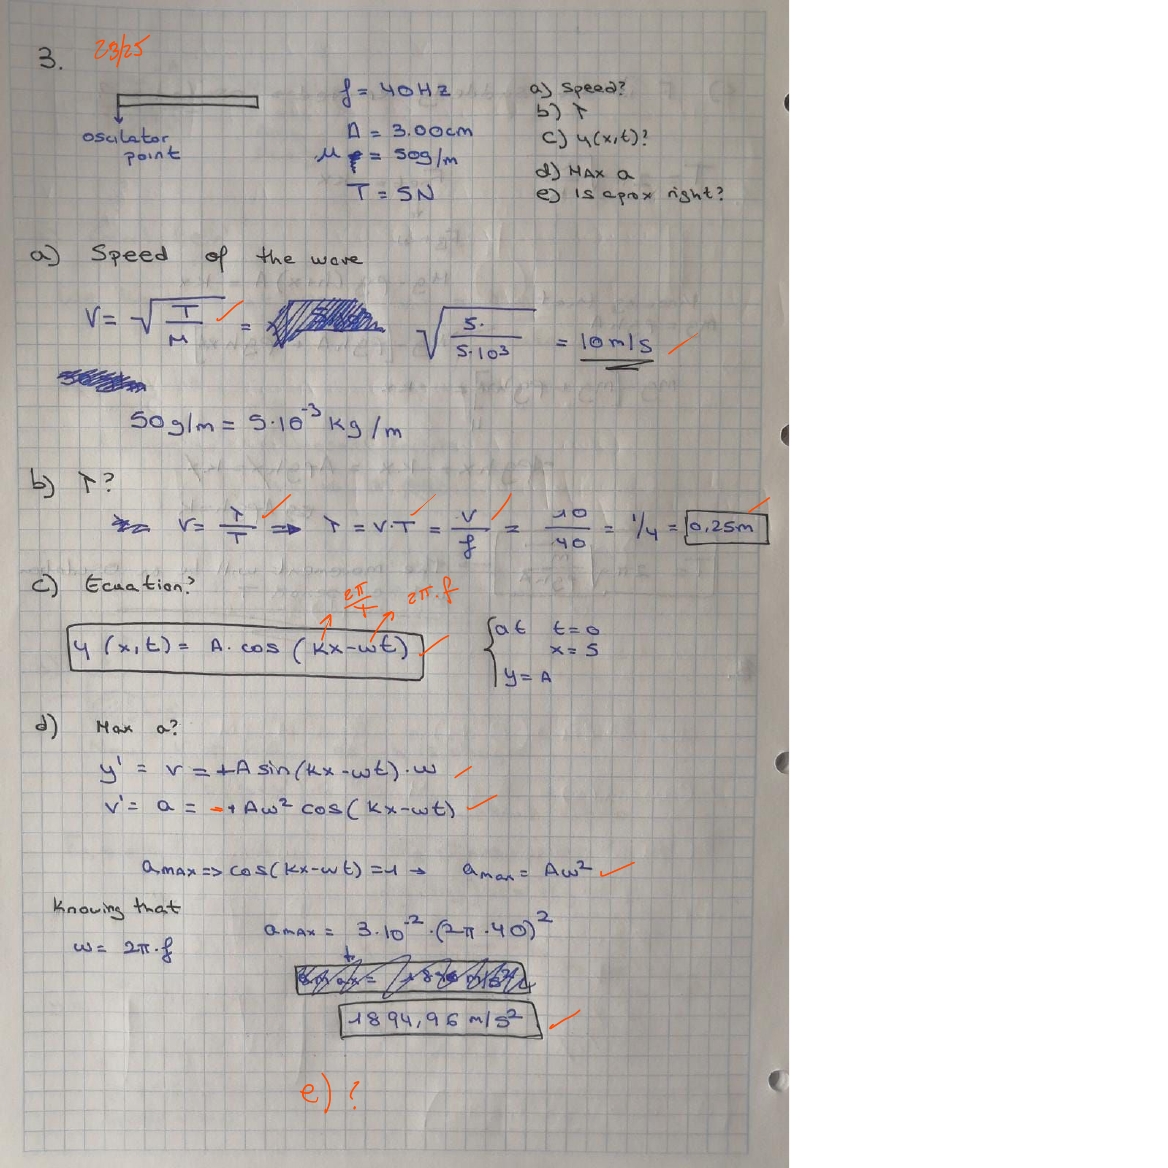 3. 23/25
f = 40Hz
A = 3.00cm
μ = 50g/m
T = 5N
oscilator
point
a) Speed?
b) λ
c) y(x,t)?
d) Max a
e) Is aprox right?
a) Speed of the wave
V = √(T/μ) = √(5·/5·10³) = 10m/s
50g/m = 5·10⁻³ kg/m
b) λ?
V = λ/T ⇒ λ = V·T = V/f = 10/40 = 1/4 = 0,25m
c) Ecuation?
2π/λ 2π·f
y (x,t) = A·cos (kx-wt)
{at t=0
x=5
y=A
d) Max a?
y' = v = +A sin(kx-wt)·w
v' = a = -+Aw² cos(kx-wt)
amax => cos(kx-wt) =1 → amax = Aw²
Knowing that
w = 2π·f
amax = 3·10⁻²·(2π·40)²
1894,96 m/s²
e) ?